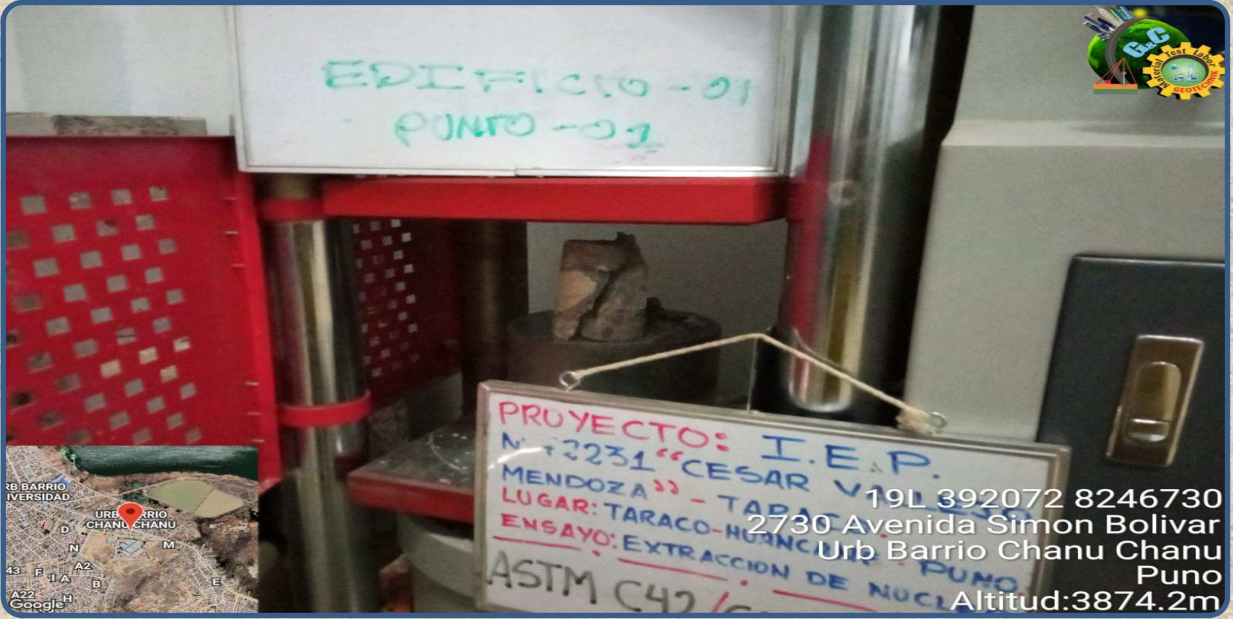 EDIFICIO - 01
PUNTO - 01
G&C
Material Test Labor
GEOTECHNIK
PROYECTO: I.E.P.
"CESAR
MENDOZA" - TARACO
LUGAR: TARACO-HUANCANE - PUNO
ENSAYO: EXTRACCION DE
ASTM C42/
19L 392072 8246730
2730 Avenida Simon Bolivar
Urb Barrio Chanu Chanu
Puno
Altitud:3874.2m
RB BARRIO
IVERSIDAD
URB BARRIO
CHANU CHANU
D
N
M
A2
43
F
I
A
B
E
A22
H
Google